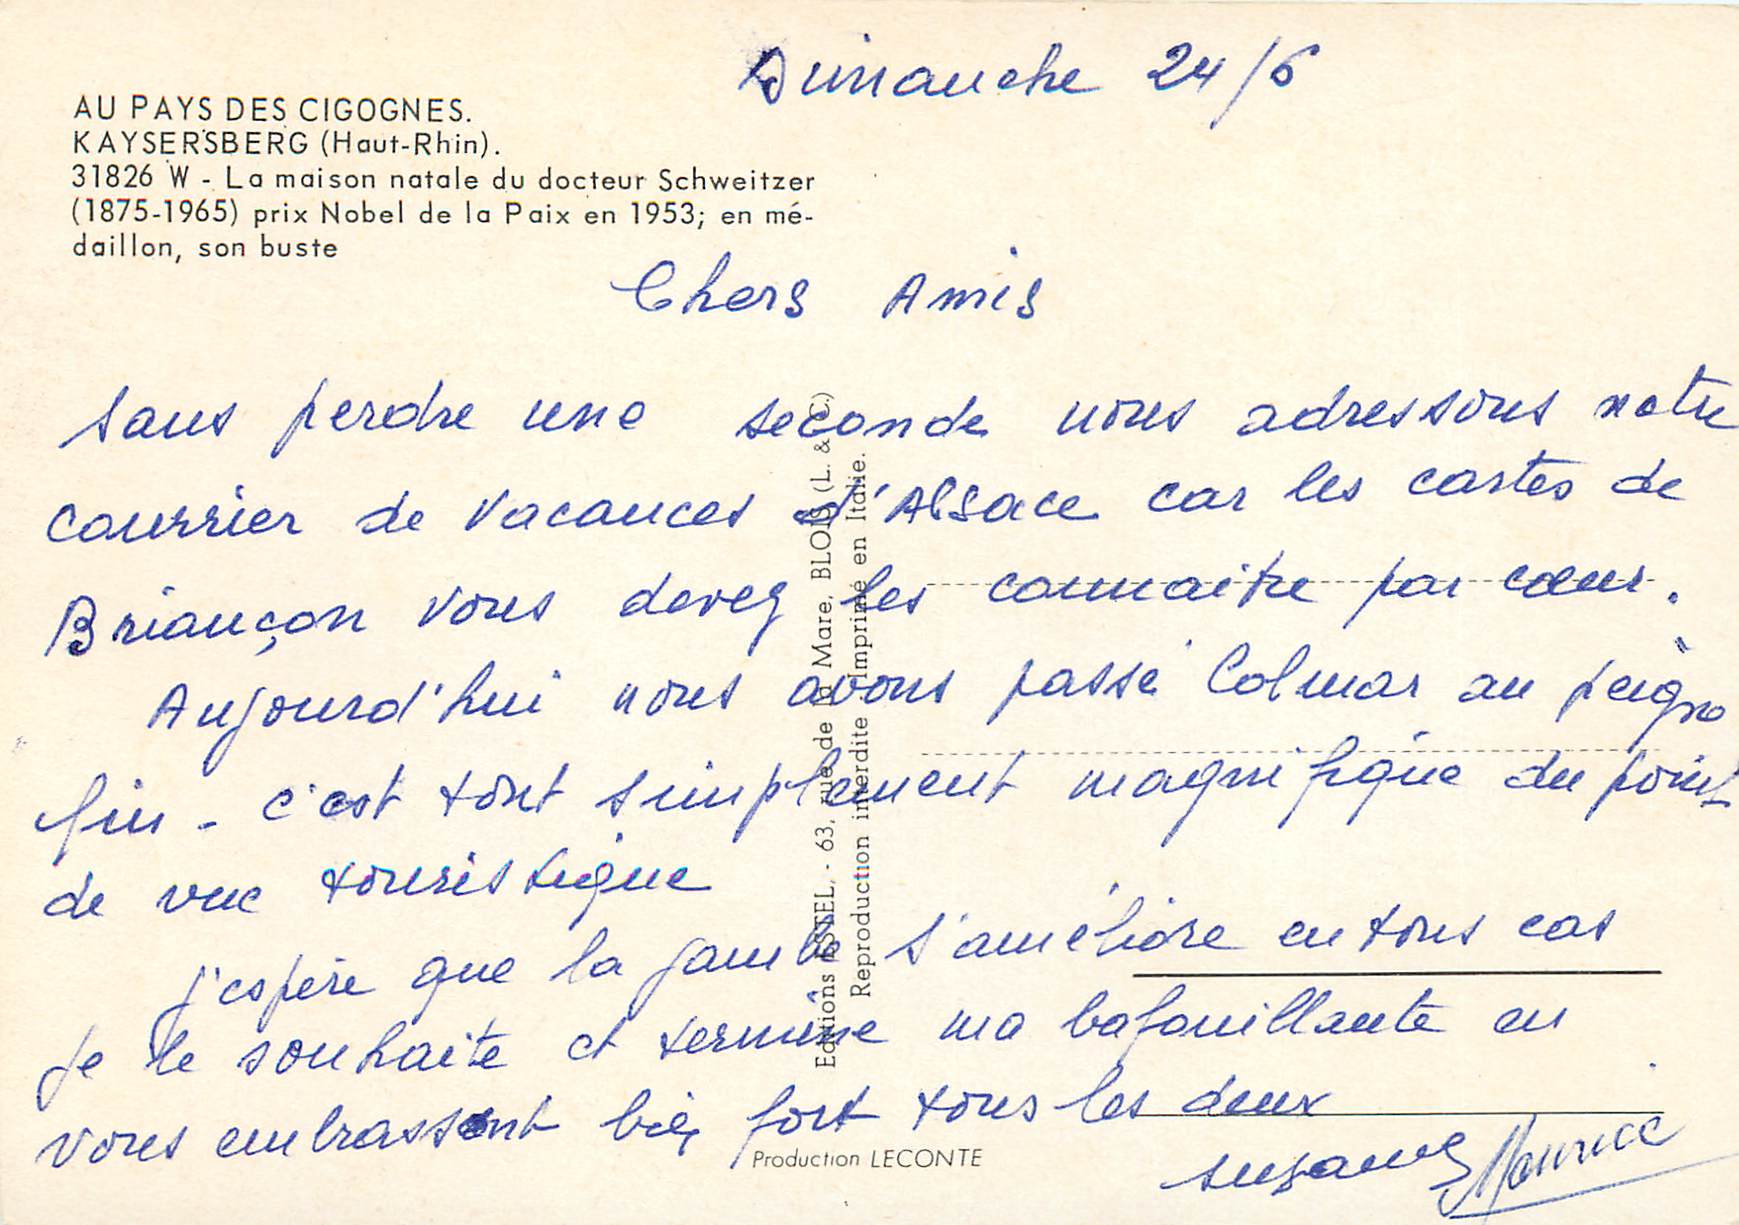 Dimanche 24/6
AU PAYS DES CIGOGNES.
KAYSERSBERG (Haut-Rhin).
31826 W - La maison natale du docteur Schweitzer
(1875-1965) prix Nobel de la Paix en 1953; en mé-
daillon, son buste
Chers Amis
Sans perdre une seconde nous adressons notre
courrier de vacances d'Alsace car les cartes de
Briançon vous devez les connaitre par cœur.
Aujourd'hui nous avons passé Colmar au peigne
fin - c'est tout simplement magnifique du point
de vue touristique
j'espère que la jambe s'améliore en tous cas
je le souhaite et termine ma bafouillante en
vous embrassant bien fort tous les deux
Suzanne Maurice
Editions ESTEL, - 63, rue de la Mare, BLOIS (L. & C.)
Reproduction interdite - Imprimé en Italie.
Production LECONTE